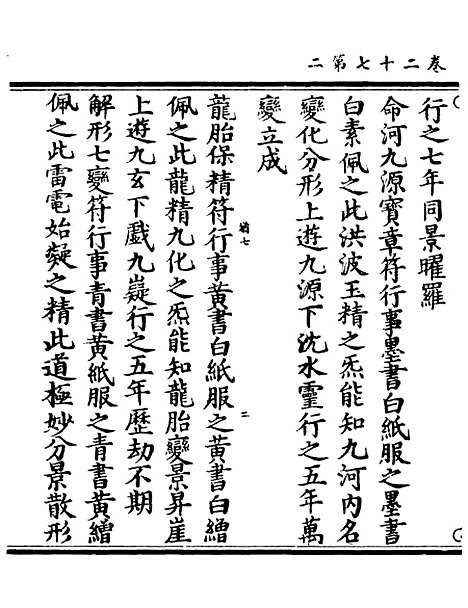 卷二十七第二
行之七年同景曜羅
命河九源寶章符行事墨書白紙服之墨書
白素佩之此洪波玉精之炁能知九河內名
變化分形上遊九源下沈水靈行之五年萬
變立成
龍胎保精符行事黃書白紙服之黃書白繒
佩之此龍精九化之炁能知龍胎變景昇崖
上遊九玄下戲九嶷行之五年歷劫不期
解形七變符行事青書黃紙服之青書黃繒
佩之此雷電始凝之精此道極妙分景散形
七
二